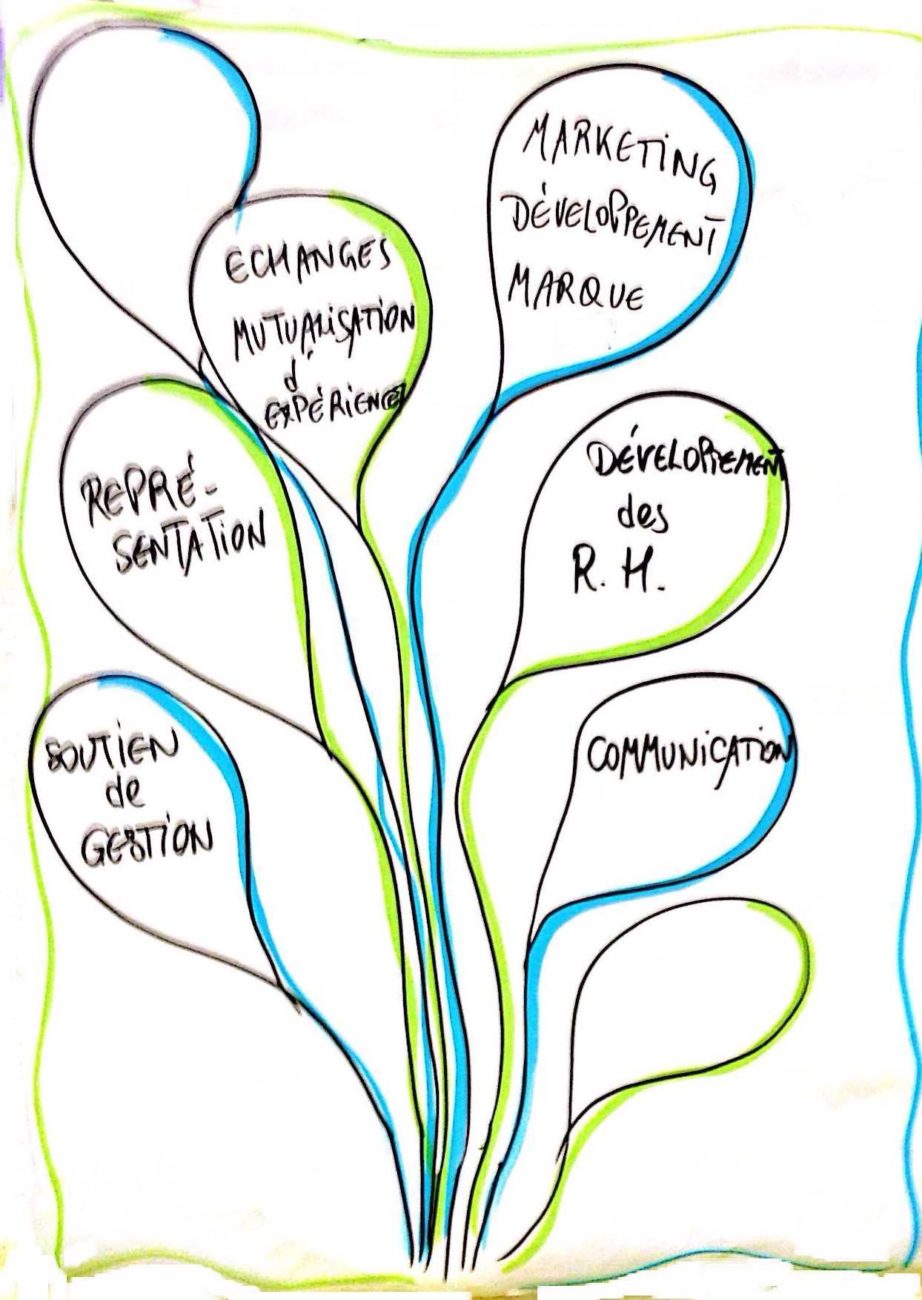 ECHANGES
MUTUALISATION
d'
EXPÉRIENCES
MARKETING
DÉVELOPPEMENT
MARQUE
REPRÉ-
SENTATION
DÉVELOPPEMENT
des
R. H.
SOUTIEN
de
GESTION
COMMUNICATION